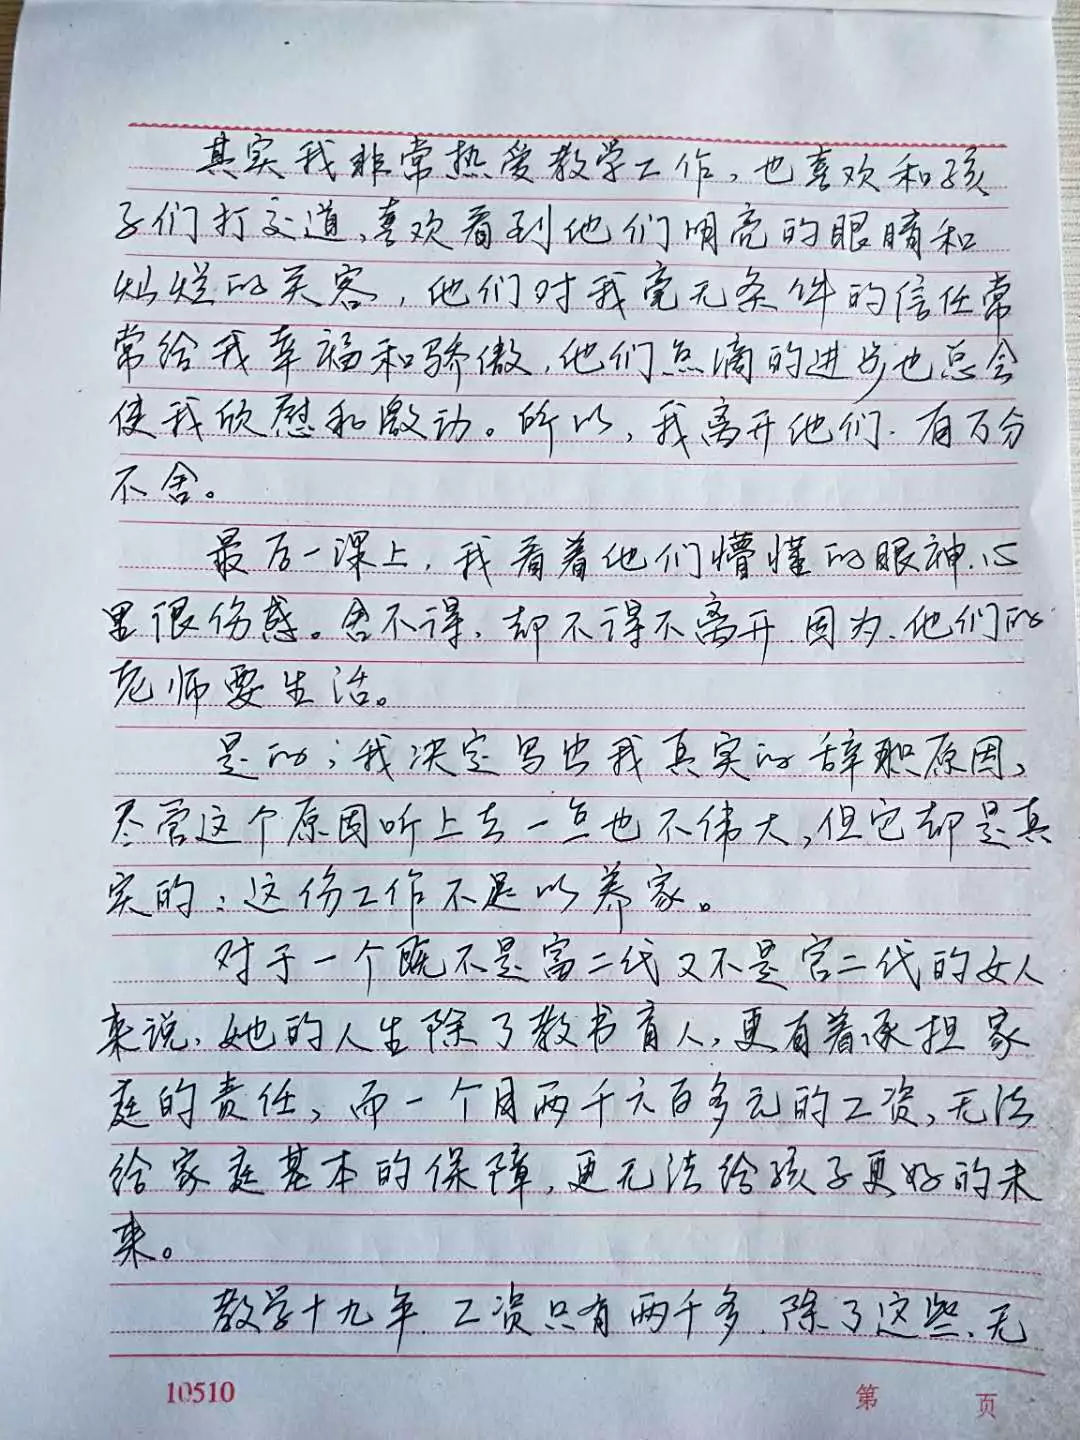 其实我非常热爱教学工作,也喜欢和孩
子们打交道,喜欢看到他们明亮的眼睛和
灿烂的笑容,他们对我毫无条件的信任常
常给我幸福和骄傲,他们点滴的进步也总会
使我欣慰和激动。所以,我离开他们.有万分
不舍。
最后一课上,我看着他们懵懂的眼神.心
里很伤感。舍不得,却不得不离开.因为.他们的
老师要生活。
是的;我决定写出我真实的辞职原因,
尽管这个原因听上去一点也不伟大,但它却是真
实的:这份工作不足以养家。
对于一个既不是富二代又不是官二代的女人
来说,她的人生除了教书育人,更有着承担家
庭的责任,而一个月两千六百多元的工资,无法
给家庭基本的保障,更无法给孩子更好的未
来。
教学十九年.工资只有两千多.除了这些.无
10510 第 页